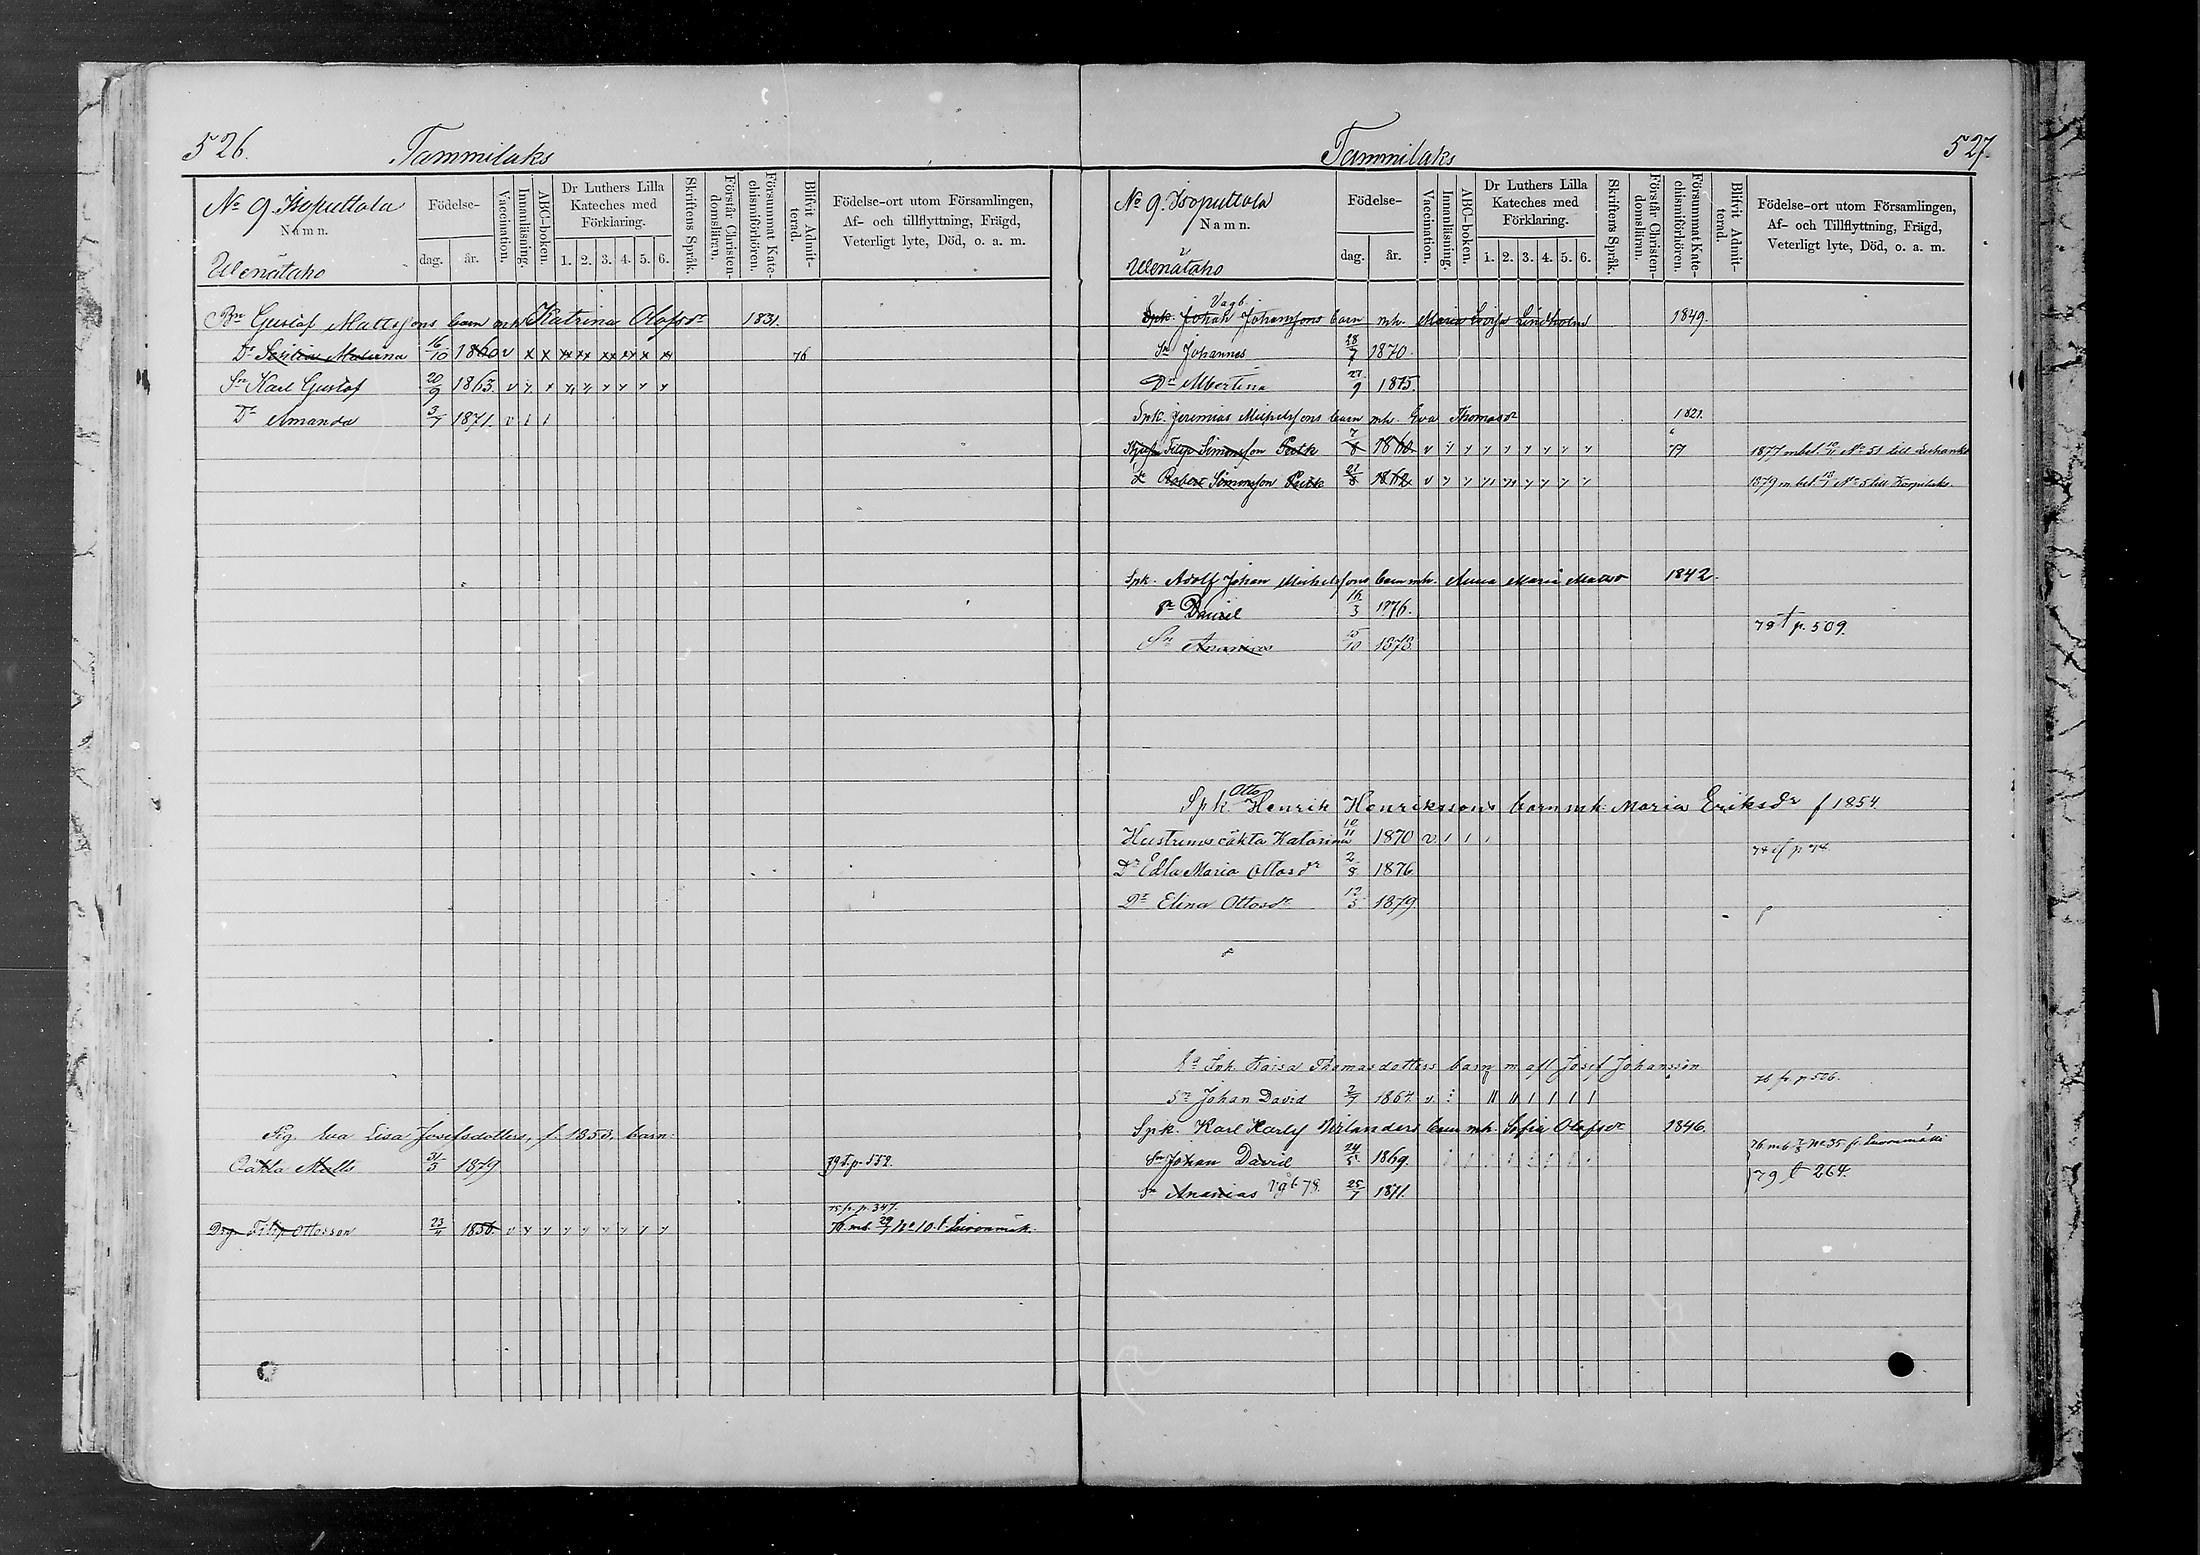 526.
Tammilaks
No 9. Isoputtola
Namn.
Ulenätaho
Födelse-
dag.
år.
Vaccination.
Innanläsning.
ABC-boken.
Dr Luthers Lilla
Kateches med
Förklaring.
1. 2. 3. 4. 5. 6.
Skriftens Språk.
Förstår Christen-
domsläran.
Försummat Kate-
chismiförhören.
Blifvit Admit-
terad.
Födelse-ort utom Församlingen,
Af- och tillflyttning, Frägd,
Veterligt lyte, Död, o. a. m.
Bn Gustaf Mattssons barn mh Katrina Olofsdr 1831.
Dr Materna 16/10 1860 v x x 76
Sn Karl Gustaf 20/9 1863. v
Dr Amanda 3/7 1871. v 1 1
Pig. Eva Lisa Josefsdotters, f. 1853, barn:
Oäkta Matts 31/3 1879 79 t. p. 552.
75 fr. p. 347.
Drg. Filip Ottosson 23/4 1856. v 76 mb. 29/7 No 10. t.
527.
Tammilaks
No 9. Isoputtola
Namn.
Ulenätaho
Födelse-
dag.
år.
Vaccination.
Innanläsning.
ABC-boken.
Dr Luthers Lilla
Kateches med
Förklaring.
1. 2. 3. 4. 5. 6.
Skriftens Språk.
Förstår Christen-
domsläran.
Försummat Kate-
chismiförhören.
Blifvit Admit-
terad.
Födelse-ort utom Församlingen,
Af- och Tillflyttning, Frägd,
Veterligt lyte, Död, o. a. m.
Vagb.
Spk. Johan Johanssons barn mh. Maria Lovisa Lindholm 1849.
Sn Johannes 28/7 1870.
Dr Albertina 27/9 1875.
Spk. Jeremias Michelssons barn mh. Eva Thomasdr 1821.
Filip Simonsson 7/8 1860. v 77 1877 m bet. No 51 till
Dr Robert Simonsson 22/8 1862. v 1879 m bet. No 5 till Korpilaks.
Spk. Adolf Johan Michelssons barn mh. Anna Maria Matsdr 1842.
Sn David 16/3 1876.
78 t p. 509.
Sn Ananias 1878.
Otto
Spk. Henrik Henrikssons barn mh. Maria Eriksdr f 1854
Hustruns oäkta Katarina 10/11 1870 v. 1 1 1
Dr Edla Maria Ottosdr 2/8 1876
Dr Elina Ottosdr 12/3 1879
Kaisa Thomasdotters barn m afl Josef Johansson
76 fr. p 506.
Sn Johan David 2/7 1864. v.
Spk. Karl Harly Nirlanders barn mh. Sofia Olofsdr 1846.
Sn Johan David 24/5 1869. 79 t 264.
Sn Ananias Vgb 78. 25/7 1871.